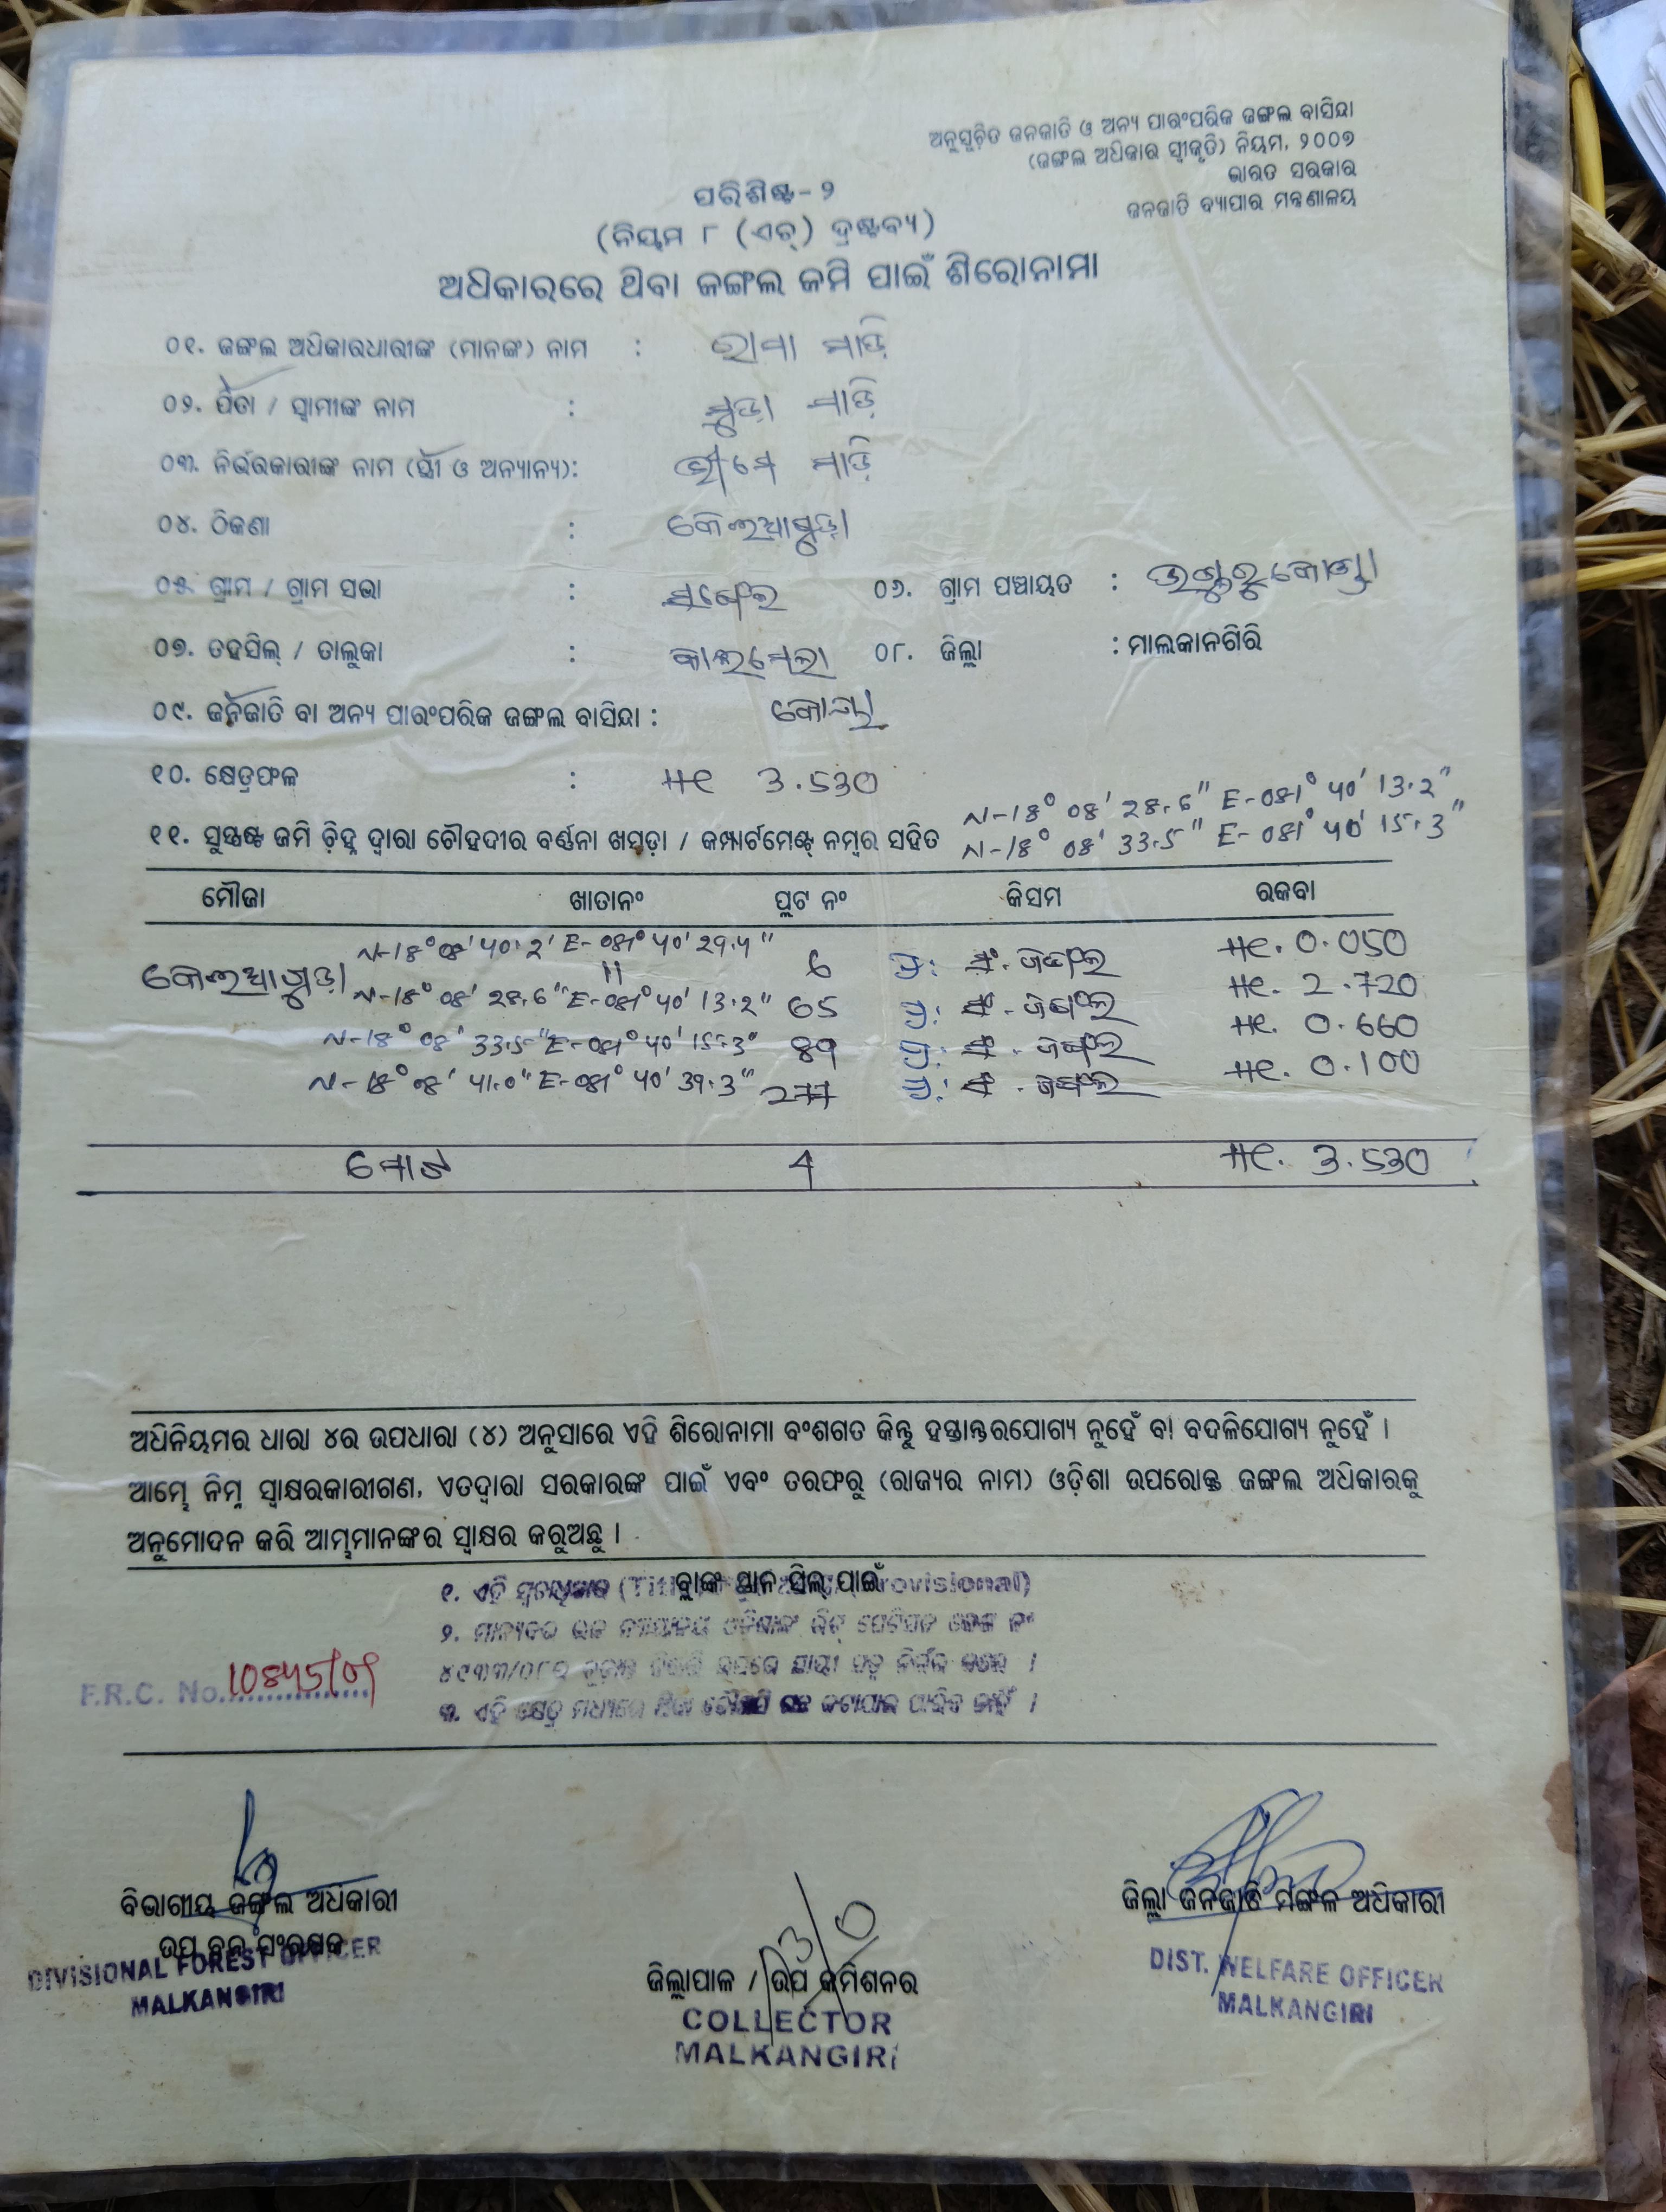 ଅନୁସୂଚିତ ଜନଜାତି ଓ ଅନ୍ୟ ପାରଂପରିକ ଜଙ୍ଗଲ ବାସିନ୍ଦା
(ଜଙ୍ଗଲ ଅଧିକାର ସ୍ୱୀକୃତି) ନିୟମ, ୨୦୦୭
ଭାରତ ସରକାର
ଜନଜାତି ବ୍ୟାପାର ମନ୍ତ୍ରଣାଳୟ
ପରିଶିଷ୍ଟ-୨
(ନିୟମ ୮ (ଏଚ୍) ଦ୍ରଷ୍ଟବ୍ୟ)
ଅଧିକାରରେ ଥିବା ଜଙ୍ଗଲ ଜମି ପାଇଁ ଶିରୋନାମା
୦୧. ଜଙ୍ଗଲ ଅଧିକାରଧାରୀଙ୍କ (ମାନଙ୍କ) ନାମ : ରାମା ମାଡ଼ି
୦୨. ପିତା / ସ୍ୱାମୀଙ୍କ ନାମ : ମାଡ଼ି
୦୩. ନିର୍ଭରକାରୀଙ୍କ ନାମ (ସ୍ତ୍ରୀ ଓ ଅନ୍ୟାନ୍ୟ): ଭୀମେ ମାଡ଼ି
୦୪. ଠିକଣା : କେଲଆଗୁଡ଼ା
୦୫. ଗ୍ରାମ / ଗ୍ରାମ ସଭା : ୦୬. ଗ୍ରାମ ପଞ୍ଚାୟତ :
୦୭. ତହସିଲ୍ / ତାଲୁକା : କାଲମେଲା ୦୮. ଜିଲ୍ଲା : ମାଲକାନଗିରି
୦୯. ଜନଜାତି ବା ଅନ୍ୟ ପାରଂପରିକ ଜଙ୍ଗଲ ବାସିନ୍ଦା : କୋୟା
୧୦. କ୍ଷେତ୍ରଫଳ : He 3.530
N-18° 08' 28.6" E-081° 40' 13.2"
୧୧. ସୁସ୍ପଷ୍ଟ ଜମି ଚିହ୍ନ ଦ୍ୱାରା ଚୌହଦୀର ବର୍ଣ୍ଣନା ଖସଡ଼ା / କମ୍ପାର୍ଟମେଣ୍ଟ୍ ନମ୍ବର ସହିତ N-18° 08' 33.5" E-081° 40' 15.3"
ମୌଜା ଖାତାନଂ ପ୍ଲଟ ନଂ କିସମ ରକବା
N-18° 08' 40.2' E-081° 40' 29.4"
କେଲଆଗୁଡ଼ା 11 6 ଜଙ୍ଗଲ He. 0.050
N-18° 08' 28.6" E-081° 40' 13.2" 65 ଜଙ୍ଗଲ He. 2.720
N-18° 08' 33.5" E-081° 40' 15.3" ଜଙ୍ଗଲ He. 0.660
N-18° 08' 41.0" E-081° 40' 39.3" 277 ଜଙ୍ଗଲ He. 0.100
ମୋଟ 4 He. 3.530
ଅଧିନିୟମର ଧାରା ୪ର ଉପଧାରା (୪) ଅନୁସାରେ ଏହି ଶିରୋନାମା ବଂଶଗତ କିନ୍ତୁ ହସ୍ତାନ୍ତରଯୋଗ୍ୟ ନୁହେଁ ବା ବଦଳିଯୋଗ୍ୟ ନୁହେଁ ।
ଆମ୍ଭେ ନିମ୍ନ ସ୍ୱାକ୍ଷରକାରୀଗଣ, ଏତଦ୍ୱାରା ସରକାରଙ୍କ ପାଇଁ ଏବଂ ତରଫରୁ (ରାଜ୍ୟର ନାମ) ଓଡ଼ିଶା ଉପରୋକ୍ତ ଜଙ୍ଗଲ ଅଧିକାରକୁ
ଅନୁମୋଦନ କରି ଆମ୍ଭମାନଙ୍କର ସ୍ୱାକ୍ଷର କରୁଅଛୁ ।
ବ୍ଲାଙ୍କ ସ୍ଥାନ ସିଲ୍ ପାଇଁ
୧. ଏହି (Titl rovisional)
୨.
୪୯୩୩/୦୮ର
F.R.C. No. 10845/09
୩. ଏହି କ୍ଷେତ୍ର ମଧ୍ୟରେ ନାହିଁ ।
ବିଭାଗୀୟ ଜଙ୍ଗଲ ଅଧିକାରୀ
ଉପ ବନ ସଂରକ୍ଷକ
DIVISIONAL FOREST OFFICER
MALKANGIRI
ଜିଲ୍ଲାପାଳ / ଉପ କମିଶନର
COLLECTOR
MALKANGIRI
ଜିଲ୍ଲା ଜନଜାତି ମଙ୍ଗଳ ଅଧିକାରୀ
DIST. WELFARE OFFICER
MALKANGIRI